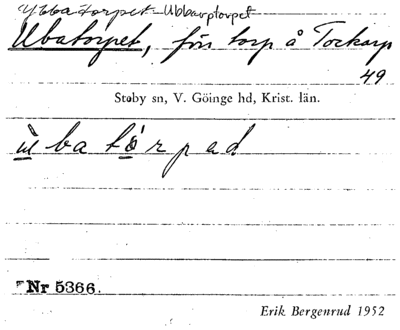 Ybbatorpet Ubbarptorpet
Ubatorpet, förs torp å Tockarp
49
Stoby sn, V. Göinge hd, Krist. län.
ù ba tò r p ad
Nr 5366.
Erik Bergenrud 1952